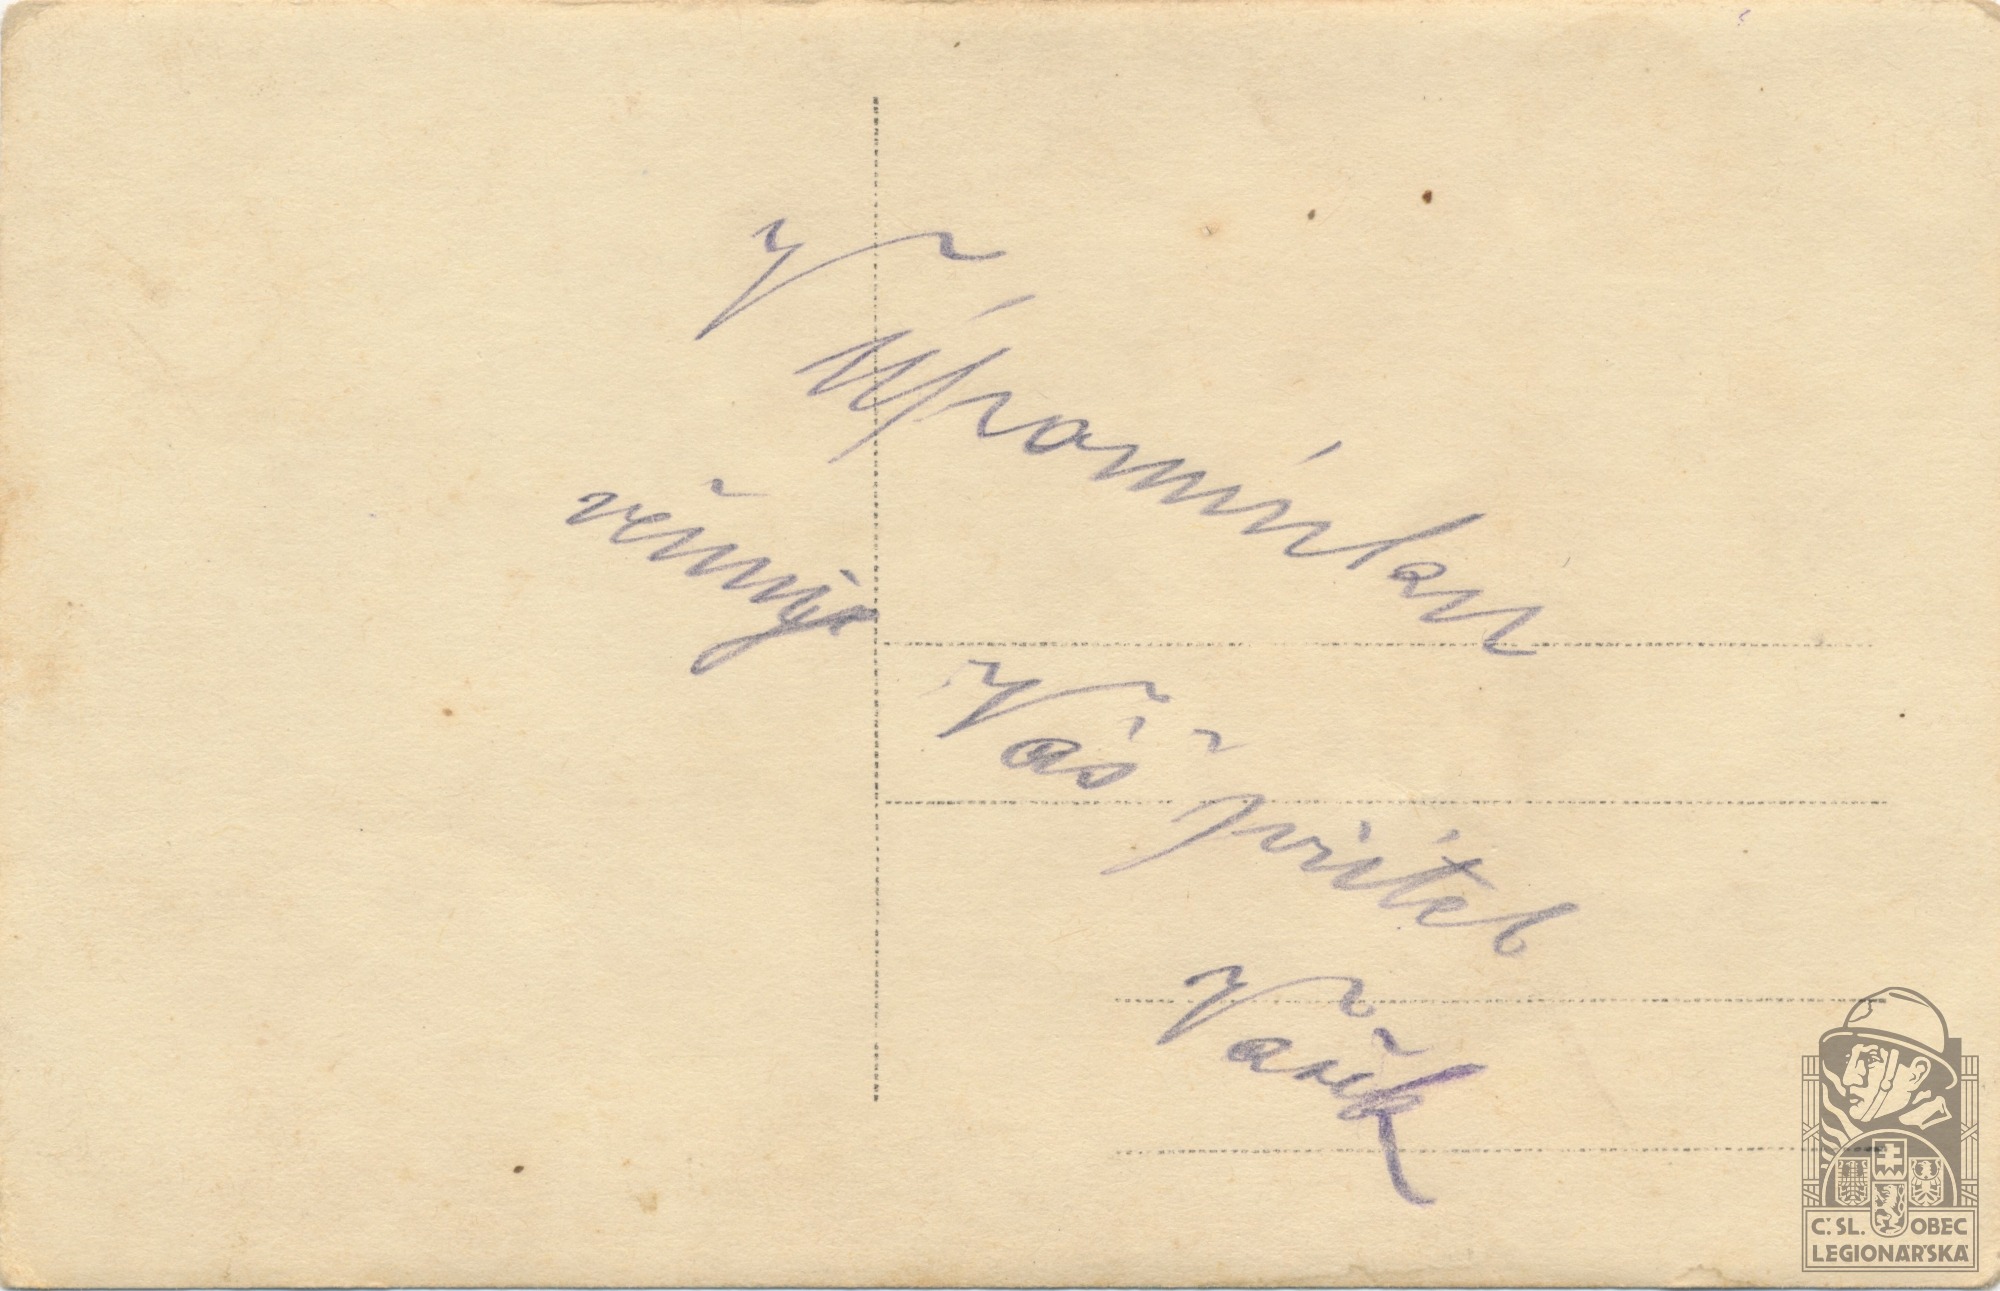 V
Úpomínku
věnuje
Váš přítel
Vašík
Č.SL. OBEC
LEGIONÁŘSKÁ